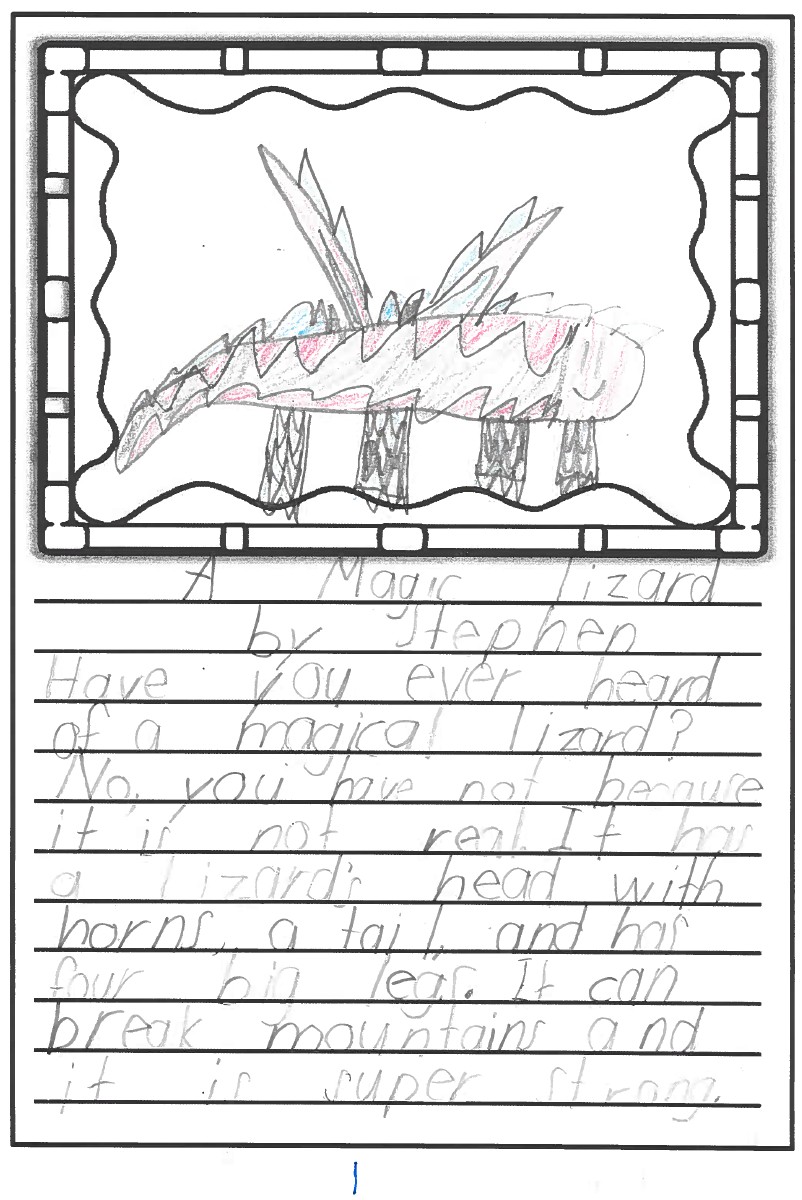 A Magic lizard
by Stephen
Have you ever heard
of a magical lizard?
No, you have not because
it is not real. It has
a lizard's head with
horns, a tail, and has
four big legs. It can
break mountains and
it is super strong.
1